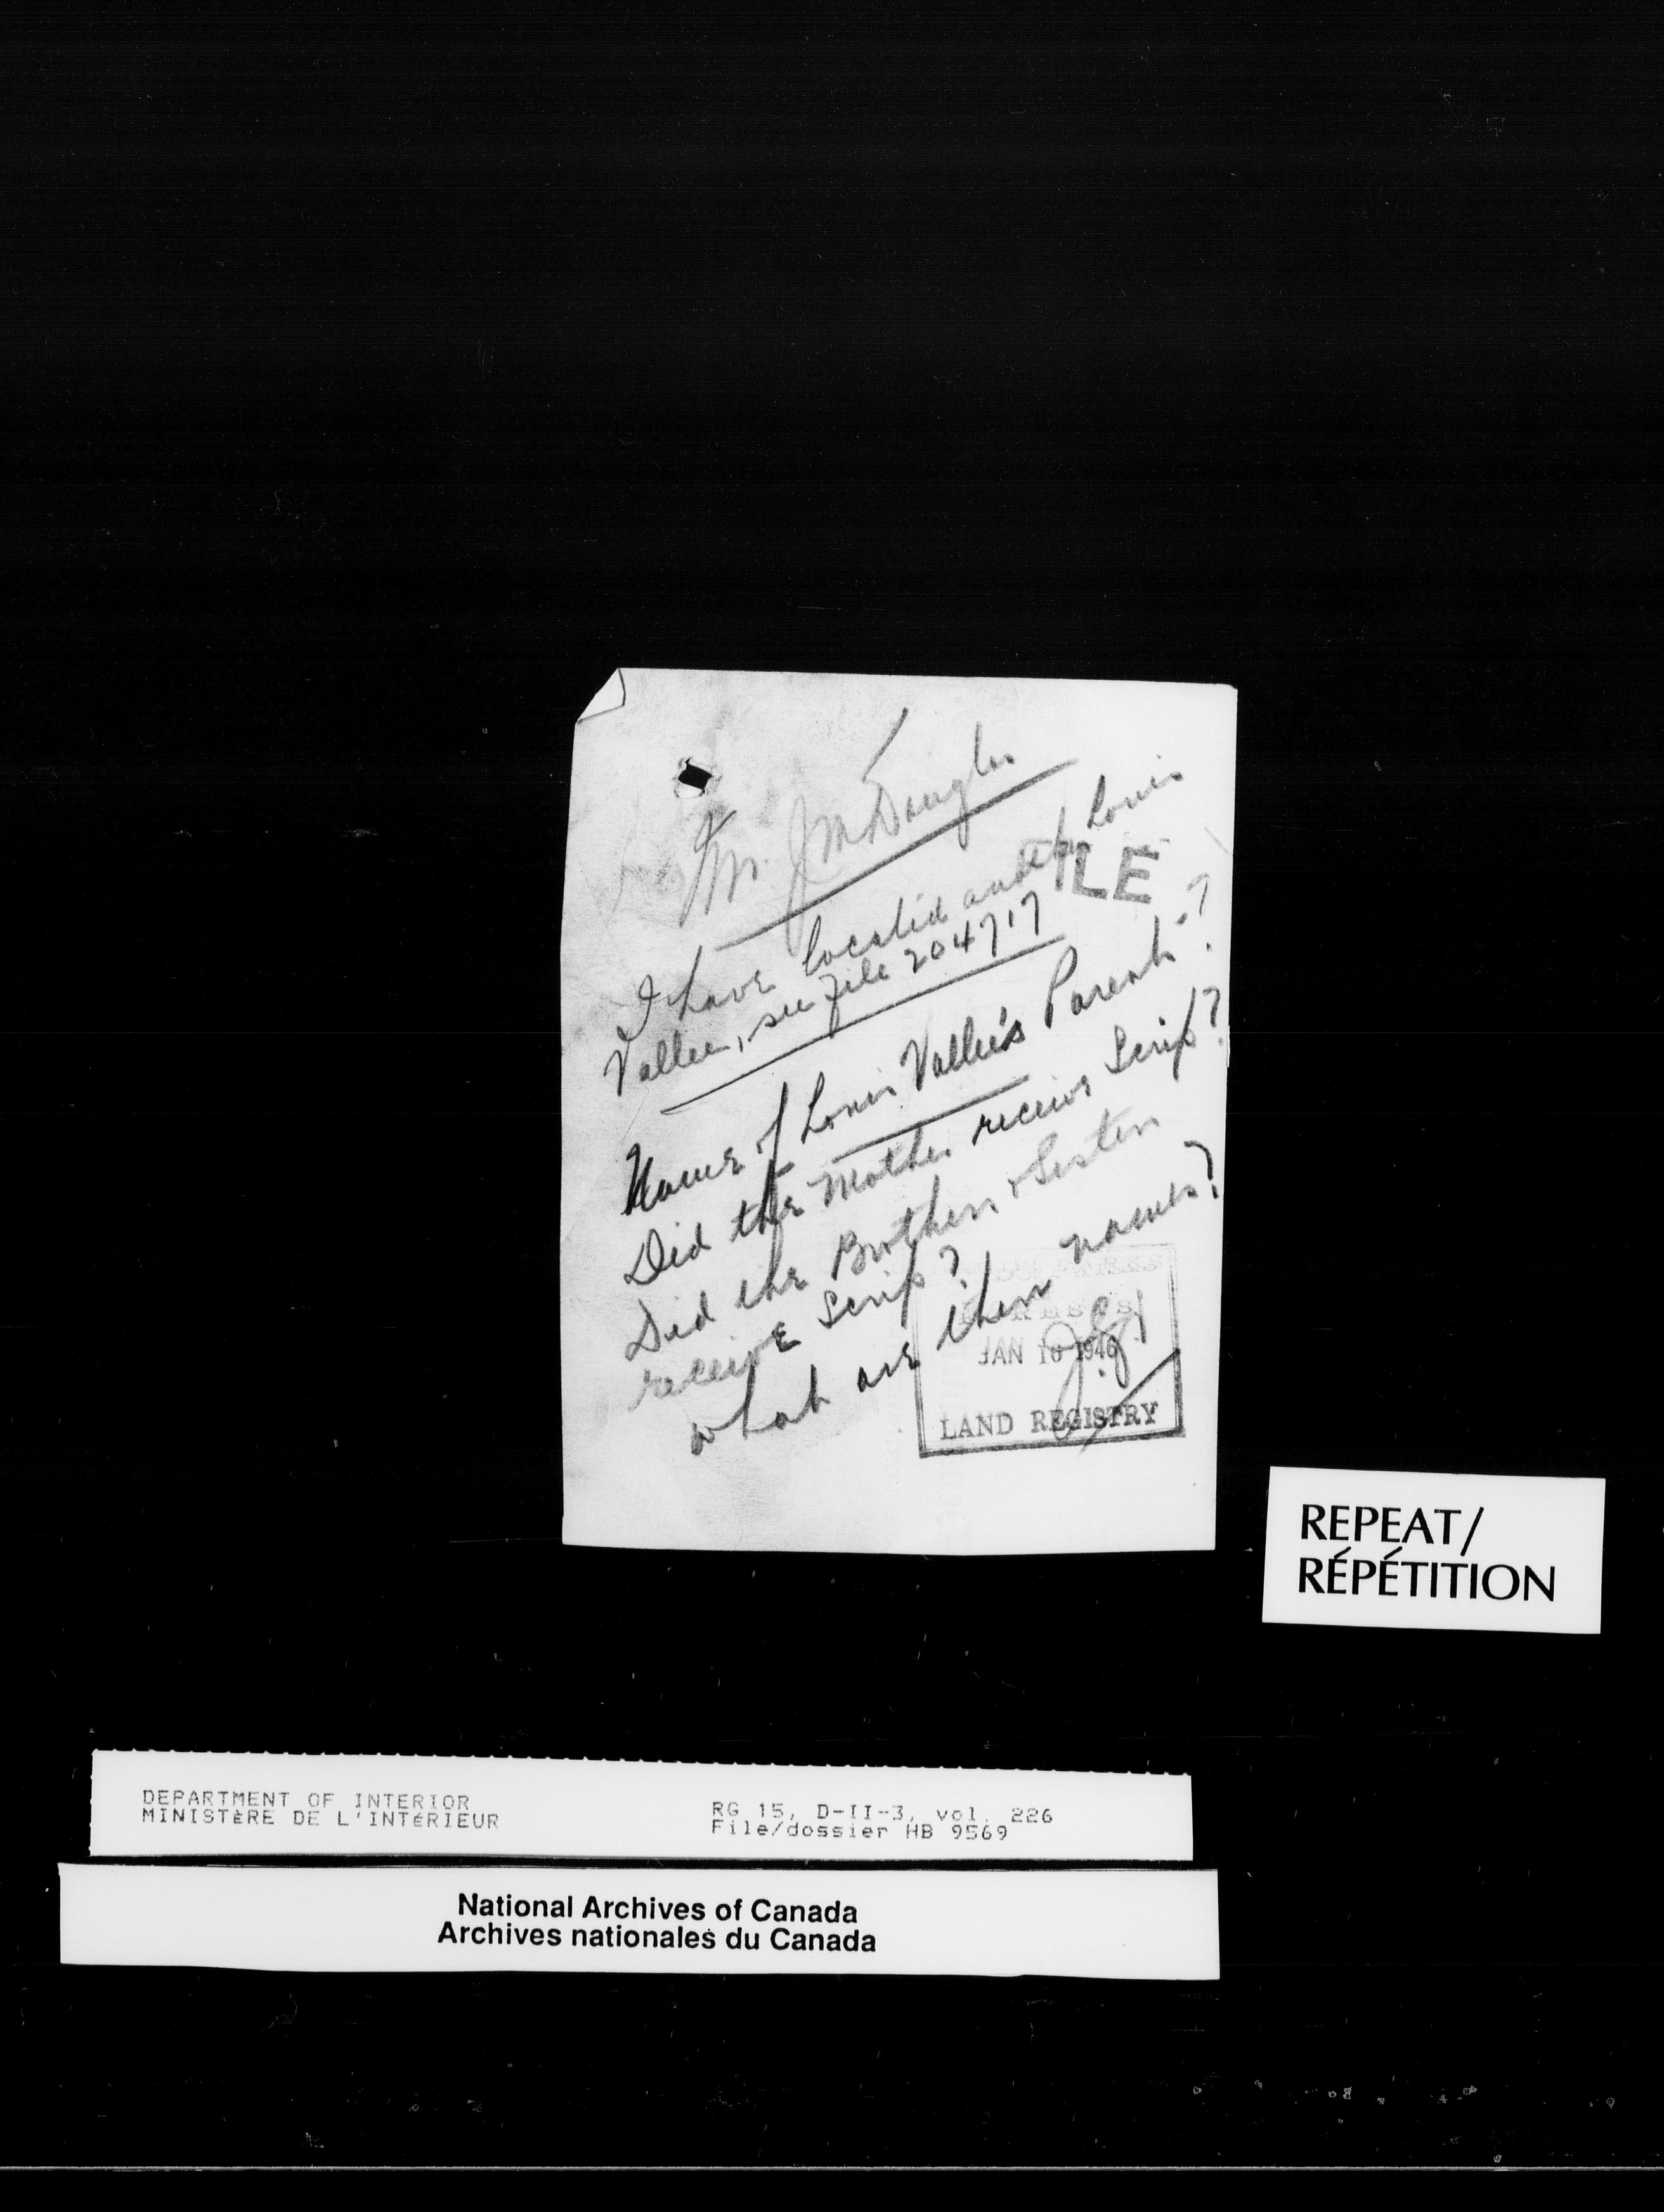 Mr. J McDougler
I have located another Louis
Vallee, see file 204717
ILE
Name of Louis Vallee's Parents?
Did the Mother receive Scrip?
Did the Brothers & Sisters
receive Scrip?
what are their names?
JAN 10 1946
LAND REGISTRY
REPEAT/
RÉPÉTITION
DEPARTMENT OF INTERIOR
MINISTÈRE DE L'INTÉRIEUR
RG 15, D-II-3, vol. 226
File/dossier HB 9569
National Archives of Canada
Archives nationales du Canada